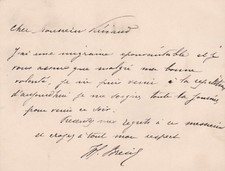 Cher Monsieur
J'ai une migraine épouvantable et je
vous assure que malgré ma bonne
volonté, je ne puis venir à la répétition
d'aujourd'hui je me soigne toute la journée
pour venir ce soir.
mes regrets à ces messieurs
et croyez à tout mon respect